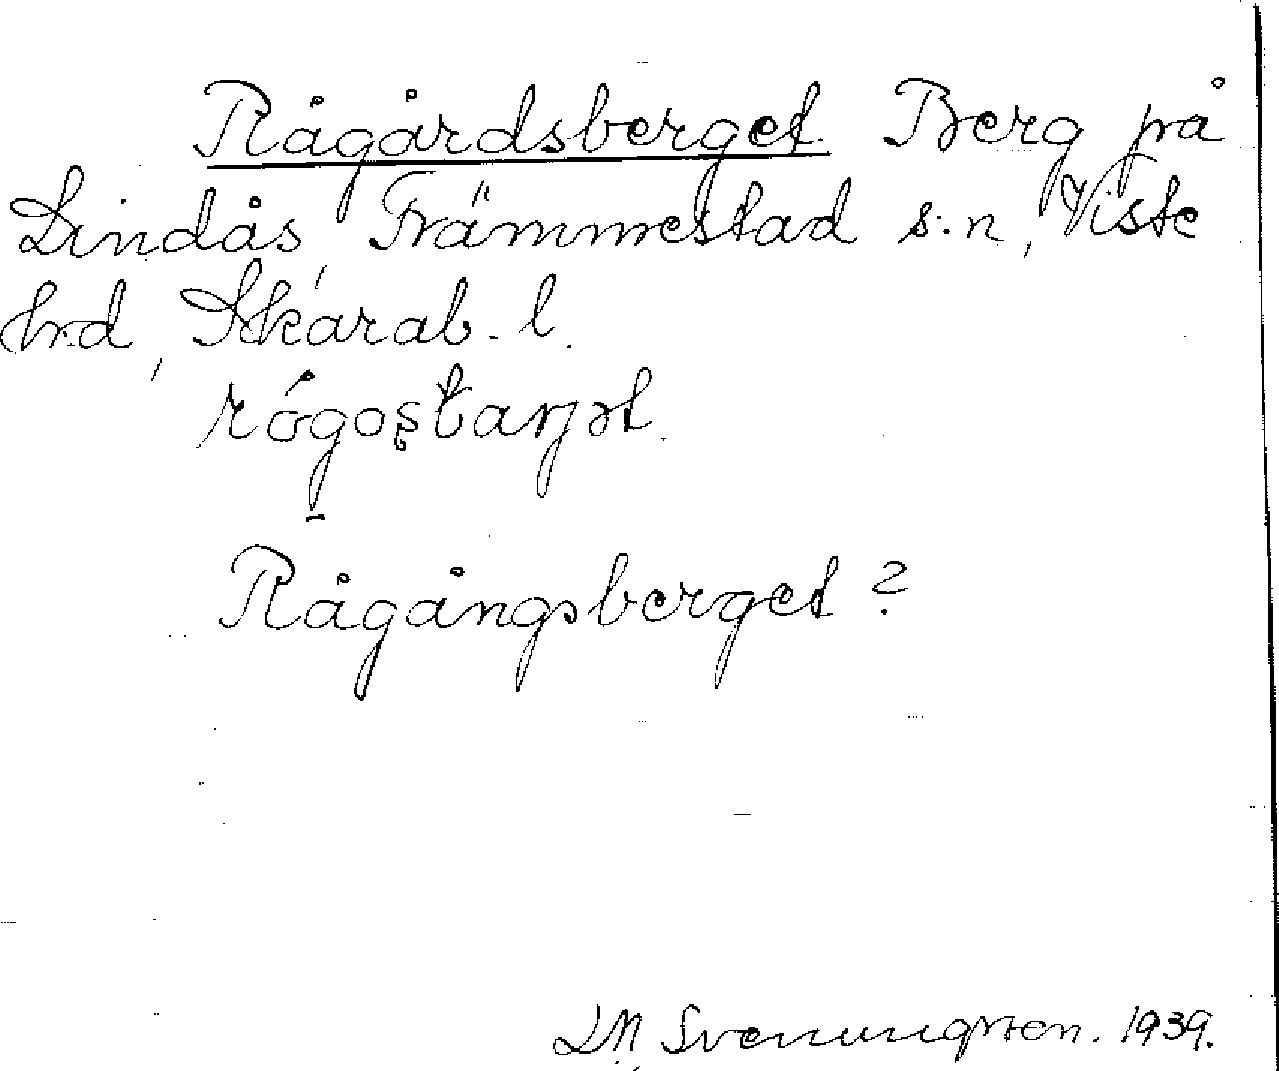 Rågårdsberget. Berg på
Lindås, Främmestad s:n, Viste
hrd, Skarab. l.
Rågångsberget?
LM Svenungsson. 1939.